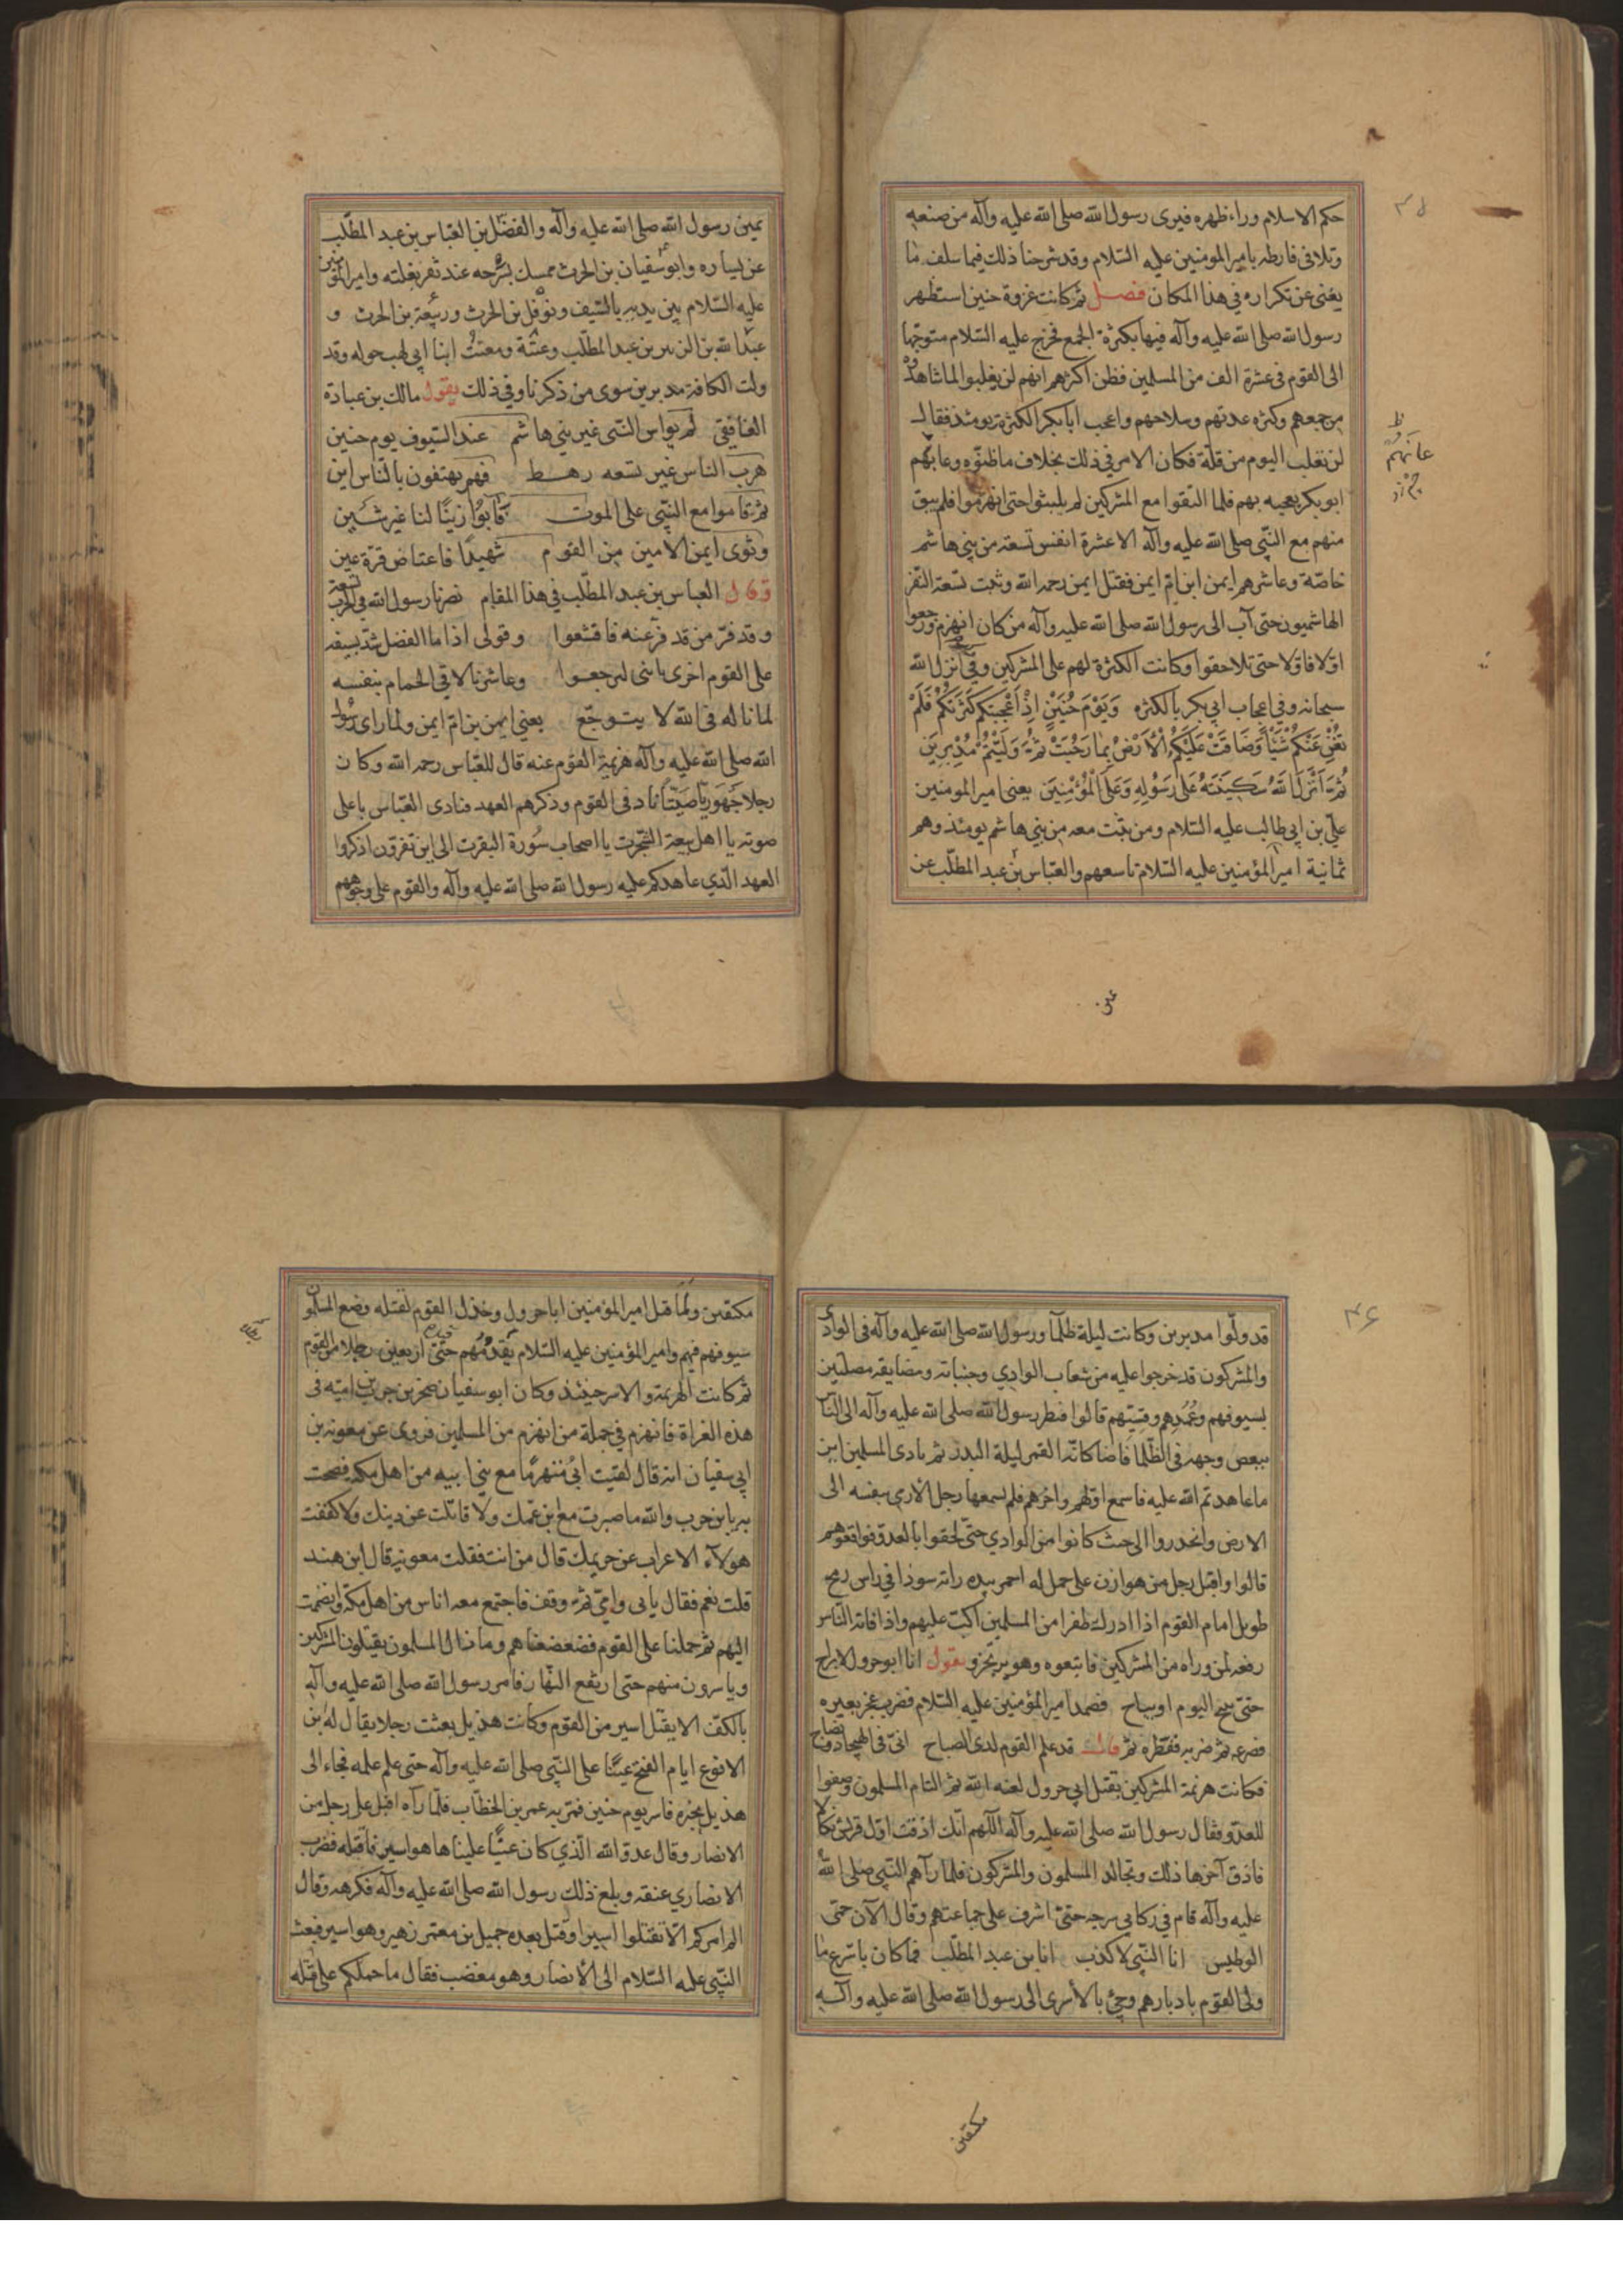 حكم الاسلام وراء ظهره فيوى رسول الله صلى الله عليه وآله من صنعه
وتلافى فارطه بامير المومنين عليه السّلام وقد شرحنا ذلك فيما سلف ما
يغنى عن تكراره فى هذا المكان فصل ثم كانت غزوة حنين استظهر
رسول الله صلى الله عليه وآله فيها بكثرة الجمع فخرج عليه السّلام متوجّها
الى القوم فى عشرة الف من المسلمين فظن اكثرهم انهم لن يغلبوا لما شاهدوه
من جمعهم وكثرة عدتهم وسلاحهم واعجب ابا بكر الكثرة يومئذ فقال
لن نغلب اليوم من قلّة فكان الامر فى ذلك بخلاف ما ظنّوه وعابهم
ابو بكر بعجبه بهم فلما التقوا مع المشركين لم يلبثوا حتى انهزموا فلم يبق
منهم مع النّبى صلى الله عليه وآله الا عشرة انفس تسعة من بنى هاشم
خاصّة وعاشرهم ايمن ابن امّ ايمن فقتل ايمن رحمه الله وثبت تسعة النّفر
الهاشميون حتى آب الى رسول الله صلى الله عليه وآله من كان انهزم ورجعوا
اوّلا فاوّلا حتى تلاحقوا وكانت الكثرة لهم على المشركين وفى انزل الله
سبحانه وفى اعجاب ابى بكر بالكثره وَيَوْمَ حُنَيْنٍ اِذْ اَعْجَبَتْكُمْ كَثْرَتُكُمْ فَلَمْ
تُغْنِ عَنْكُمْ شَيْئًا وَضَاقَتْ عَلَيْكُمُ الْاَرْضُ بِمَا رَحُبَتْ ثُمَّ وَلَّيْتُمْ مُدْبِرِينَ
ثُمَّ اَنْزَلَ اللهُ سَكِينَتَهُ عَلَى رَسُولِهِ وَعَلَى الْمُؤْمِنِينَ يعنى امير المومنين
علىّ بن ابى طالب عليه السّلام ومن ثبت معه من بنى هاشم يومئذ وهم
ثمانية امير المؤمنين عليه السّلام تاسعهم والعبّاس بن عبد المطّلب عن
عن
يمين رسول الله صلى الله عليه وآله والفضل بن العباس بن عبد المطّلب
عن يساره وابو سفيان بن الحرث ممسك بسرجه عند ثفر بغلته وامير المؤمنين
عليه السّلام بين يديه بالسّيف ونوفل بن الحرث وربيعة بن الحرث و
عبد الله بن الزبير بن عبد المطّلب وعتبة ومعتب ابنا ابى لهب حوله وقد
ولت الكافة مدبرين سوى من ذكرنا وفى ذلك يقول مالك بن عبادة
الغافقى لم يواس النّبى غير بنى هاشم عند السّيوف يوم حنين
هرب الناس غير تسعه رهط فهم يهتفون بالنّاس اين
ثم قاموا مع النّبى على الموت فآبوا زينًا لنا غير شين
وثوى ايمن الامين من القوم شهيدًا فاعتاض قرّة عين
وقال العباس بن عبد المطّلب فى هذا المقام نصرنا رسول الله فى الحرب تسعة
وقد فرّ من قد فرّ عنه فاقشعوا وقولى اذا ما الفضل شدّ بسيفه
على القوم اخرى يا بنى ليرجعوا وعاشرنا لاقى الحمام بنفسه
لما ناله فى الله لا يتوجّع يعنى ايمن بن امّ ايمن ولما راى رسول
الله صلى الله عليه وآله هزيمة القوم عنه قال للعبّاس رحمه الله وكان
رجلا جَهْوَريًّا صَيِّتًا ناد فى القوم وذكرهم العهد فنادى العّباس باعلى
صوته يا اهل بيعة الشّجرت يا اصحاب سُورة البقرت الى اين تفرّون اذكروا
العهد الّذي عاهدكم عليه رسول الله صلى الله عليه وآله والقوم على وجوههم
٣٤
قد ولّوا مدبرين وكانت ليلة ظلما ورسول الله صلى الله عليه وآله فى الوادى
والمشركون قد خرجوا عليه من شعاب الوادي وجنباته ومضايقه مصلتين
بسيوفهم وعُمُدهم وقسيّهم قالوا فنظر رسول الله صلى الله عليه وآله الى الناس
ببعض وجهه فى الظّلما فاضا كانّه القمر ليلة البدر ثم نادى المسلمين اين
ما عاهدتم الله عليه فاسمع اوّلهم واخرهم فلم يسمعها رجل الا رمى بنفسه الى
الارض وانحدروا الى حيث كانوا من الوادي حتّى لحقوا بالعدوّ فواقعوهم
قالوا واقبل رجل من هوازن على جمل له احمر بيده راية سودا فى راس رمح
طويل امام القوم اذا ادرك ظفرا من المسلمين اكبّ عليهم واذا فاته النّاس
رفعه لمن وراه من المشركين فاتبعوه وهو يرتجز ويقول انا ابو جرول لا براح
حتّى نبيح اليوم او نباح فصمد امير المؤمنين عليه السّلام فضرب عجز بعيره
فصرعه ثم ضربه فقطّره ثمّ قال قد علم القوم لدى الصباح انّى فى الهيجا ذو نصاح
فكانت هزيمة المشركين بقتل ابى جرول لعنه الله ثم التام المسلمون وصفوا
للعدوّ فقال رسول الله صلى الله عليه وآله اللّهم انّك اذقت اوّل قريش نكالا
فاذق آخرها ذلك وتجالد المسلمون والمشركون فلما رآهم النّبى صلى الله
عليه وآله قام فى ركابى سرجه حتىّ اشرف على جماعتهم وقال الآن حمى
الوطيس انا النّبى لا كذب انا بن عبد المطّلب فما كان باسرع ما
ولى القوم بادبارهم وجئ بالأسرى الى رسول الله صلى الله عليه وآله
مكتفين
مكتفين ولمّا قتل امير المؤمنين ابا جرول وخذل القوم لقتله وضع المسلمون
سيوفهم فيهم وامير المؤمنين عليه السّلام يَقدُمُهم حتّى اربعين رجلا من القوم
ثم كانت الهزيمة والاسر حينئذ وكان ابو سفيان صخر بن حرب بن اميّه فى
هذه الغزاة فانهزم فى جملة من انهزم من المسلمين فروى عن معوية بن
ابى سفيان انه قال لقيت ابى منهزمًا مع بنى ابيه من اهل مكه فصحت
به يا بن حرب والله ما صبرت مع ابن عمّك ولا قاتلت عن دينك ولا كففت
هولآء الاعراب عن حريمك قال من انت فقلت معوية قال ابن هند
قلت نعم فقال بابى وامّى ثم وقف فاجتمع معه اناس من اهل مكة وانضمت
اليهم ثم حملنا على القوم فضعضعناهم وما زال المسلمون يقتلون المشركين
وياسرون منهم حتى ارتفع النّهار فامر رسول الله صلى الله عليه وآله
بالكفّ الا يقتل اسير من القوم وكانت هذيل بعثت رجلا يقال له بن
الاقوع ايام الفتح عينًا على النّبى صلى الله عليه وآله حتى علم علمه فجاء الى
هذيل بخبره فاسر يوم حنين فمرّ به عمر بن الخطّاب فلمّا رآه اقبل على رجل من
الانصار وقال عدوّ الله الّذي كان عينًا علينا ها هو اسير فاقتله فضرب
الانصاري عنقه وبلغ ذلك رسول الله صلى الله عليه وآله فكرهه وقال
الم امركم الّا تقتلوا اسيرا وقتل بعده جميل بن معتمر زهير وهو اسير فبعث
النّبى عليه السّلام الى الأنصار وهو مغضب فقال ما حملكم على قتله